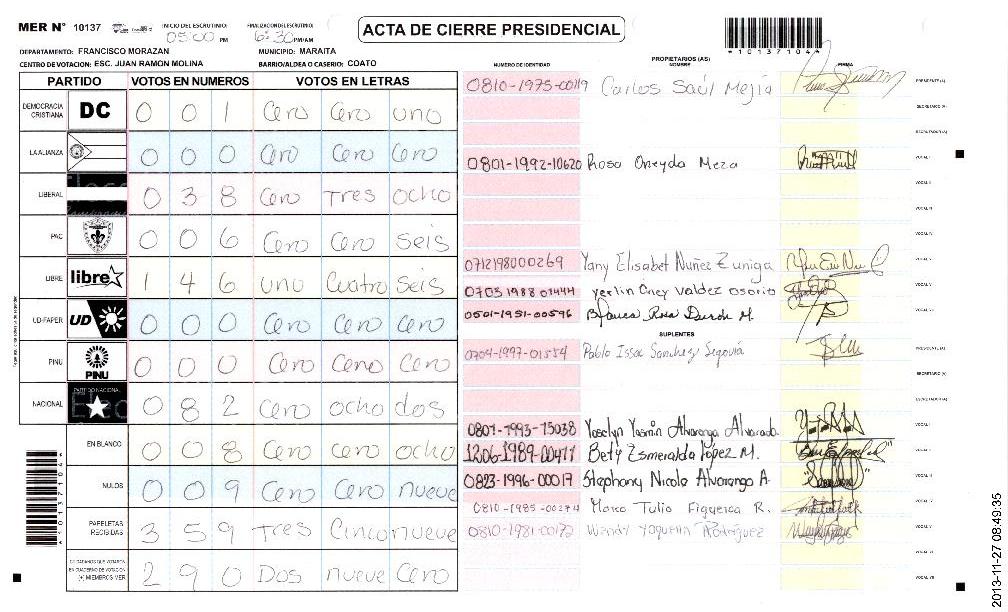 MER N° 10137
INICIO DEL ESCRUTINIO: 05:00 PM
FINALIZACION DEL ESCRUTINIO: 6:30 PM/AM
ACTA DE CIERRE PRESIDENCIAL
*101371044*
DEPARTAMENTO: FRANCISCO MORAZAN
MUNICIPIO: MARAITA
CENTRO DE VOTACION: ESC. JUAN RAMON MOLINA
BARRIO/ALDEA O CASERIO: COATO
PARTIDO VOTOS EN NUMEROS VOTOS EN LETRAS
DEMOCRACIA CRISTIANA DC 0 0 1 Cero Cero uno
LA ALIANZA 0 0 0 Cero Cero Cero
LIBERAL 0 3 8 Cero Tres ocho
PAC 0 0 6 Cero Cero seis
LIBRE libre 1 4 6 uno Cuatro seis
UD-FAPER UD 0 0 0 Cero Cero Cero
PINU PINU 0 0 0 Cero Cero Cero
NACIONAL PARTIDO NACIONAL 0 8 2 Cero ocho dos
EN BLANCO 0 0 8 Cero Cero ocho
NULOS 0 0 9 Cero Cero nueve
PAPELETAS RECIBIDAS 3 5 9 Tres Cinco nueve
CIUDADANOS QUE VOTARON EN CUADERNO DE VOTACION (+) MIEMBROS MER 2 9 0 Dos nueve Cero
NUMERO DE IDENTIDAD PROPIETARIOS (AS) NOMBRE FIRMA
0810-1975-00119 Carlos Saúl Mejía PRESIDENTE (A)
SECRETARIO (A)
ESCRUTADOR (A)
0801-1992-10620 Rosa Oneyda Meza VOCAL I
VOCAL II
VOCAL III
VOCAL IV
0712198000269 Yany Elisabet Nuñez Zuniga VOCAL V
0703198801444 Yerlin Oney Valdez Osorio
0501-1951-00596 Blanca Rosa Duron M.
SUPLENTES
0704-1997-01554 Pablo Issac Sanchez Segovia PRESIDENTE (A)
SECRETARIO (A)
ESCRUTADOR (A)
0801-1993-15038 Yoselyn Yasmin Alvarenga Alvarado VOCAL I
1206-1989-00411 Bety Esmeralda Lopez M.
0823-1996-00017 Stephany Nicole Alvarenga A.
0810-1985-00274 Marco Tulio Figueroa R.
0810-1981-00172 Wendy Yaquelin Rodriguez
2013-11-27 08:49:35